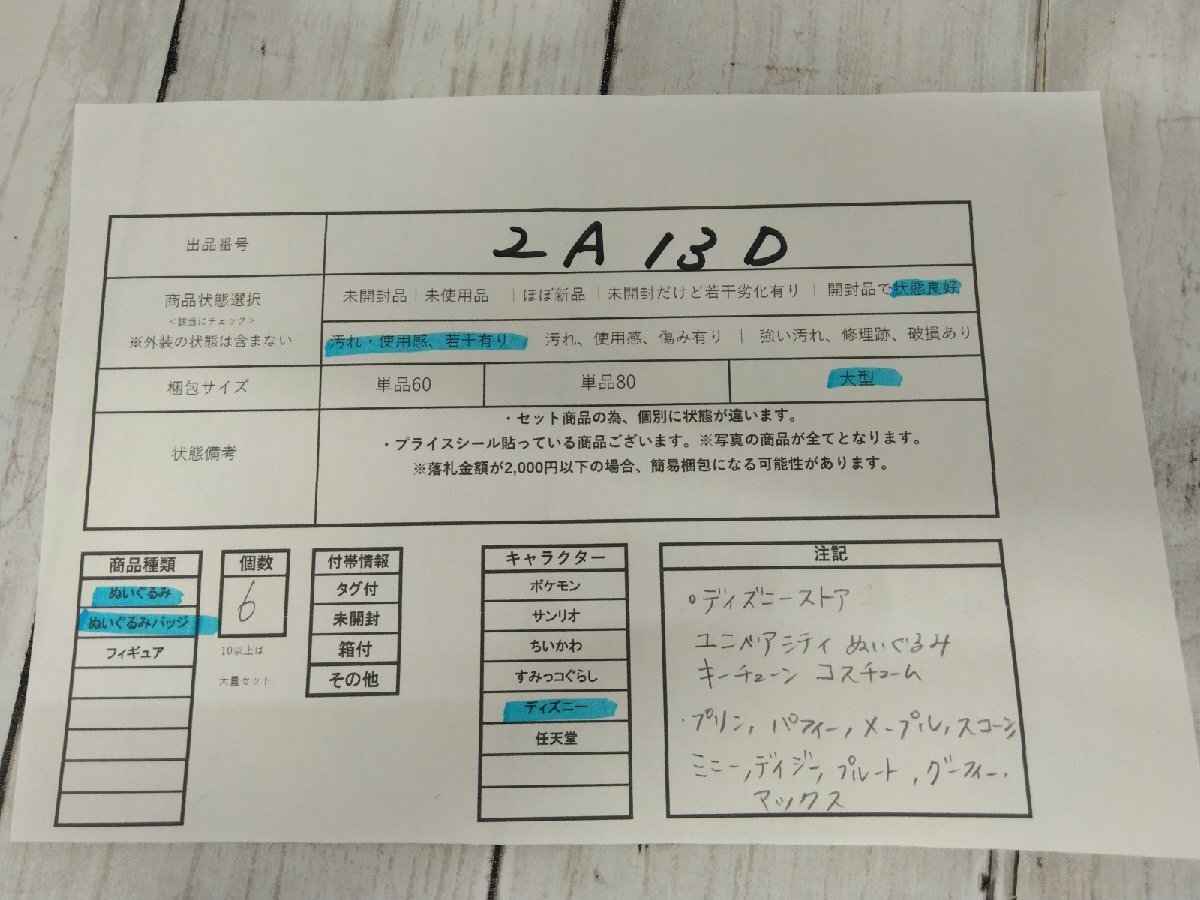 出品番号
2A13D
商品状態選択
<該当にチェック>
※外装の状態は含まない
未開封品 | 未使用品 | ほぼ新品 | 未開封だけど若干劣化有り | 開封品で状態良好
汚れ・使用感、若干有り 汚れ、使用感、傷み有り | 強い汚れ、修理跡、破損あり
梱包サイズ
単品60
単品80
大型
状態備考
・セット商品の為、個別に状態が違います。
・プライスシール貼っている商品ございます。※写真の商品が全てとなります。
※落札金額が2,000円以下の場合、簡易梱包になる可能性があります。
商品種類
ぬいぐるみ
ぬいぐるみバッジ
フィギュア
個数
6
10以上は
大量セット
付帯情報
タグ付
未開封
箱付
その他
キャラクター
ポケモン
サンリオ
ちいかわ
すみっコぐらし
ディズニー
任天堂
注記
・ディズニーストア
ユニベアシティ ぬいぐるみ
キーチェーン コスチューム
・プリン, パフィー, メープル, スコーン,
ミニー, デイジー, プルート, グーフィー,
マックス